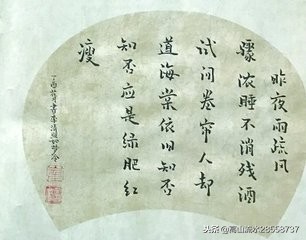 昨夜雨疏风
骤浓睡不消残酒
试问卷帘人却
道海棠依旧知否
知否应是绿肥红
瘦
丁酉月书李清照如梦令
头条@高山流水28558737